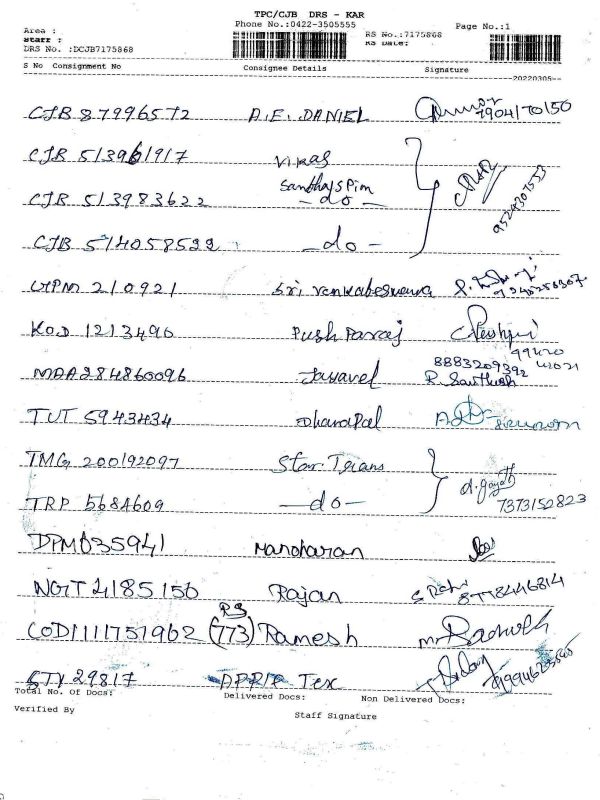 TPC/CJB DRS - KAR
Phone No.:0422-3505555
Area :
Staff :
RS No.:7175868
Page No.:1
DRS No. :DCJB7175868
RS Date:
S No Consignment No Consignee Details Signature
20220305
CJB 87996572 A.E. DANIEL 7904170150
CJB 513961917 Vikas
CJB 513983622 Santhajspim - do - 9524307553
CJB 514058522 - do -
210921 Sri Venkateswara
KOD 1213490 Push Paraj
MAA284860096 Jayavel 8883209392 R. Santhosh
TUT 5943434 Dhanapal
TMG 200192097 Star Trans
TRP 5684609 - do - 7373152823
DPM035941 Manoharan
NGT 4185150 Rajan 8778446814
COD1111757962 (RS 773) Ramesh
STV 29817 Tex
Total No. Of Docs: Delivered Docs: Non Delivered Docs:
Verified By Staff Signature